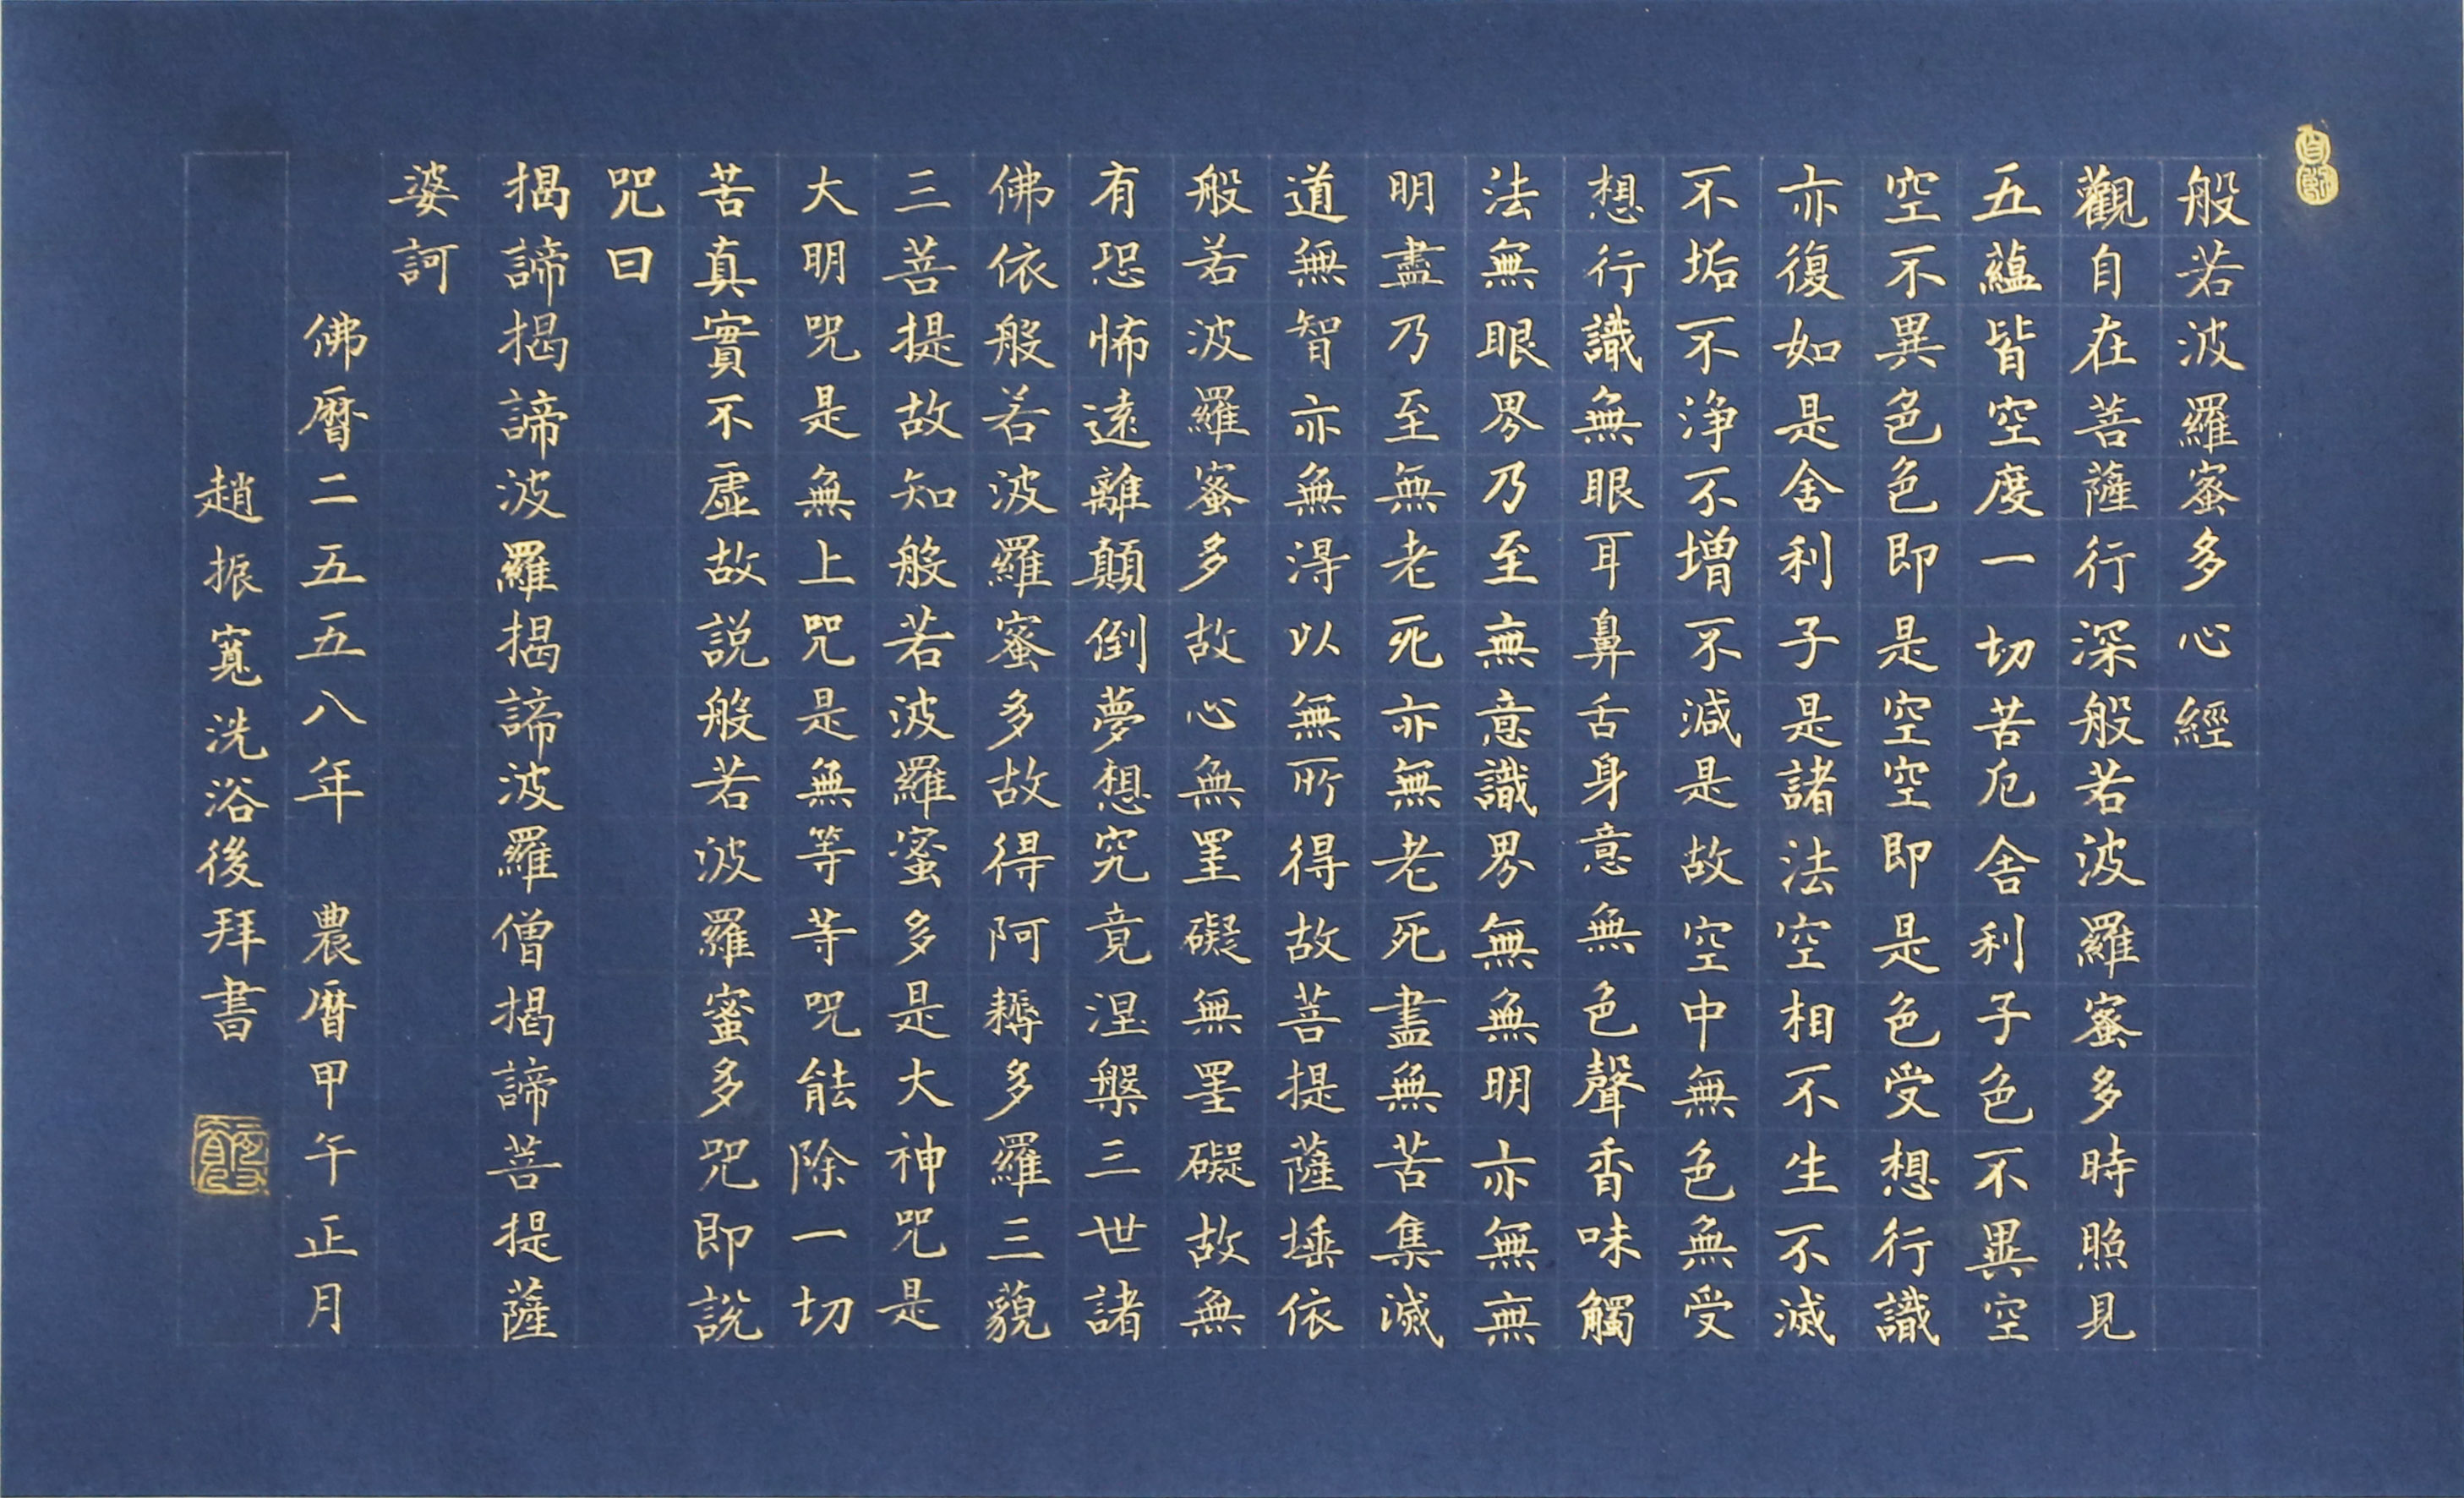 般若波羅蜜多心經
觀自在菩薩行深般若波羅蜜多時照見
五蘊皆空度一切苦厄舍利子色不異空
空不異色色即是空空即是色受想行識
亦復如是舍利子是諸法空相不生不滅
不垢不淨不增不減是故空中無色無受
想行識無眼耳鼻舌身意無色聲香味觸
法無眼界乃至無意識界無無明亦無無
明盡乃至無老死亦無老死盡無苦集滅
道無智亦無得以無所得故菩提薩埵依
般若波羅蜜多故心無罣礙無罣礙故無
有恐怖遠離顛倒夢想究竟涅槃三世諸
佛依般若波羅蜜多故得阿耨多羅三藐
三菩提故知般若波羅蜜多是大神咒是
大明咒是無上咒是無等等咒能除一切
苦真實不虛故說般若波羅蜜多咒即說
咒曰
揭諦揭諦波羅揭諦波羅僧揭諦菩提薩
婆訶
佛曆二五五八年 農曆甲午正月
趙振寬洗浴後拜書